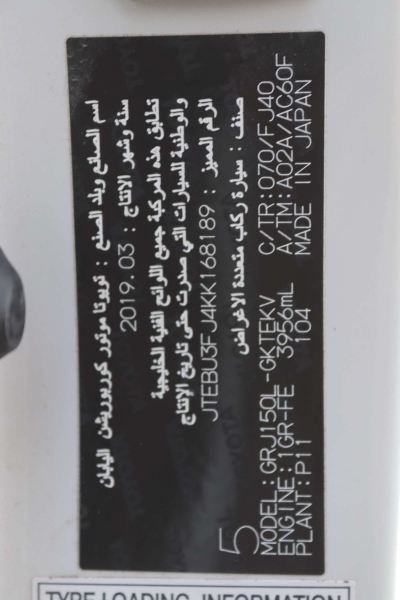 اسم الصانع وبلد الصنع : تويوتا موتور كوربوريشن اليابان
سنة وشهر الانتاج : 2019.03
تطابق هذه المركبة جميع اللوائح الفنية الخليجية
والوطنية للسيارات التي صدرت حتى تاريخ الإنتاج
الرقم المميز : JTEBU3FJ4KK168189
صنف : سيارة ركاب متعددة الاغراض
5
MODEL:GRJ150L-GKTEKV C/TR:070/FJ40
ENGINE:1GR-FE 3956mL A/TM:A02A/AC60F
PLANT:P11 104 MADE IN JAPAN
TYPE LOADING INFORMATION